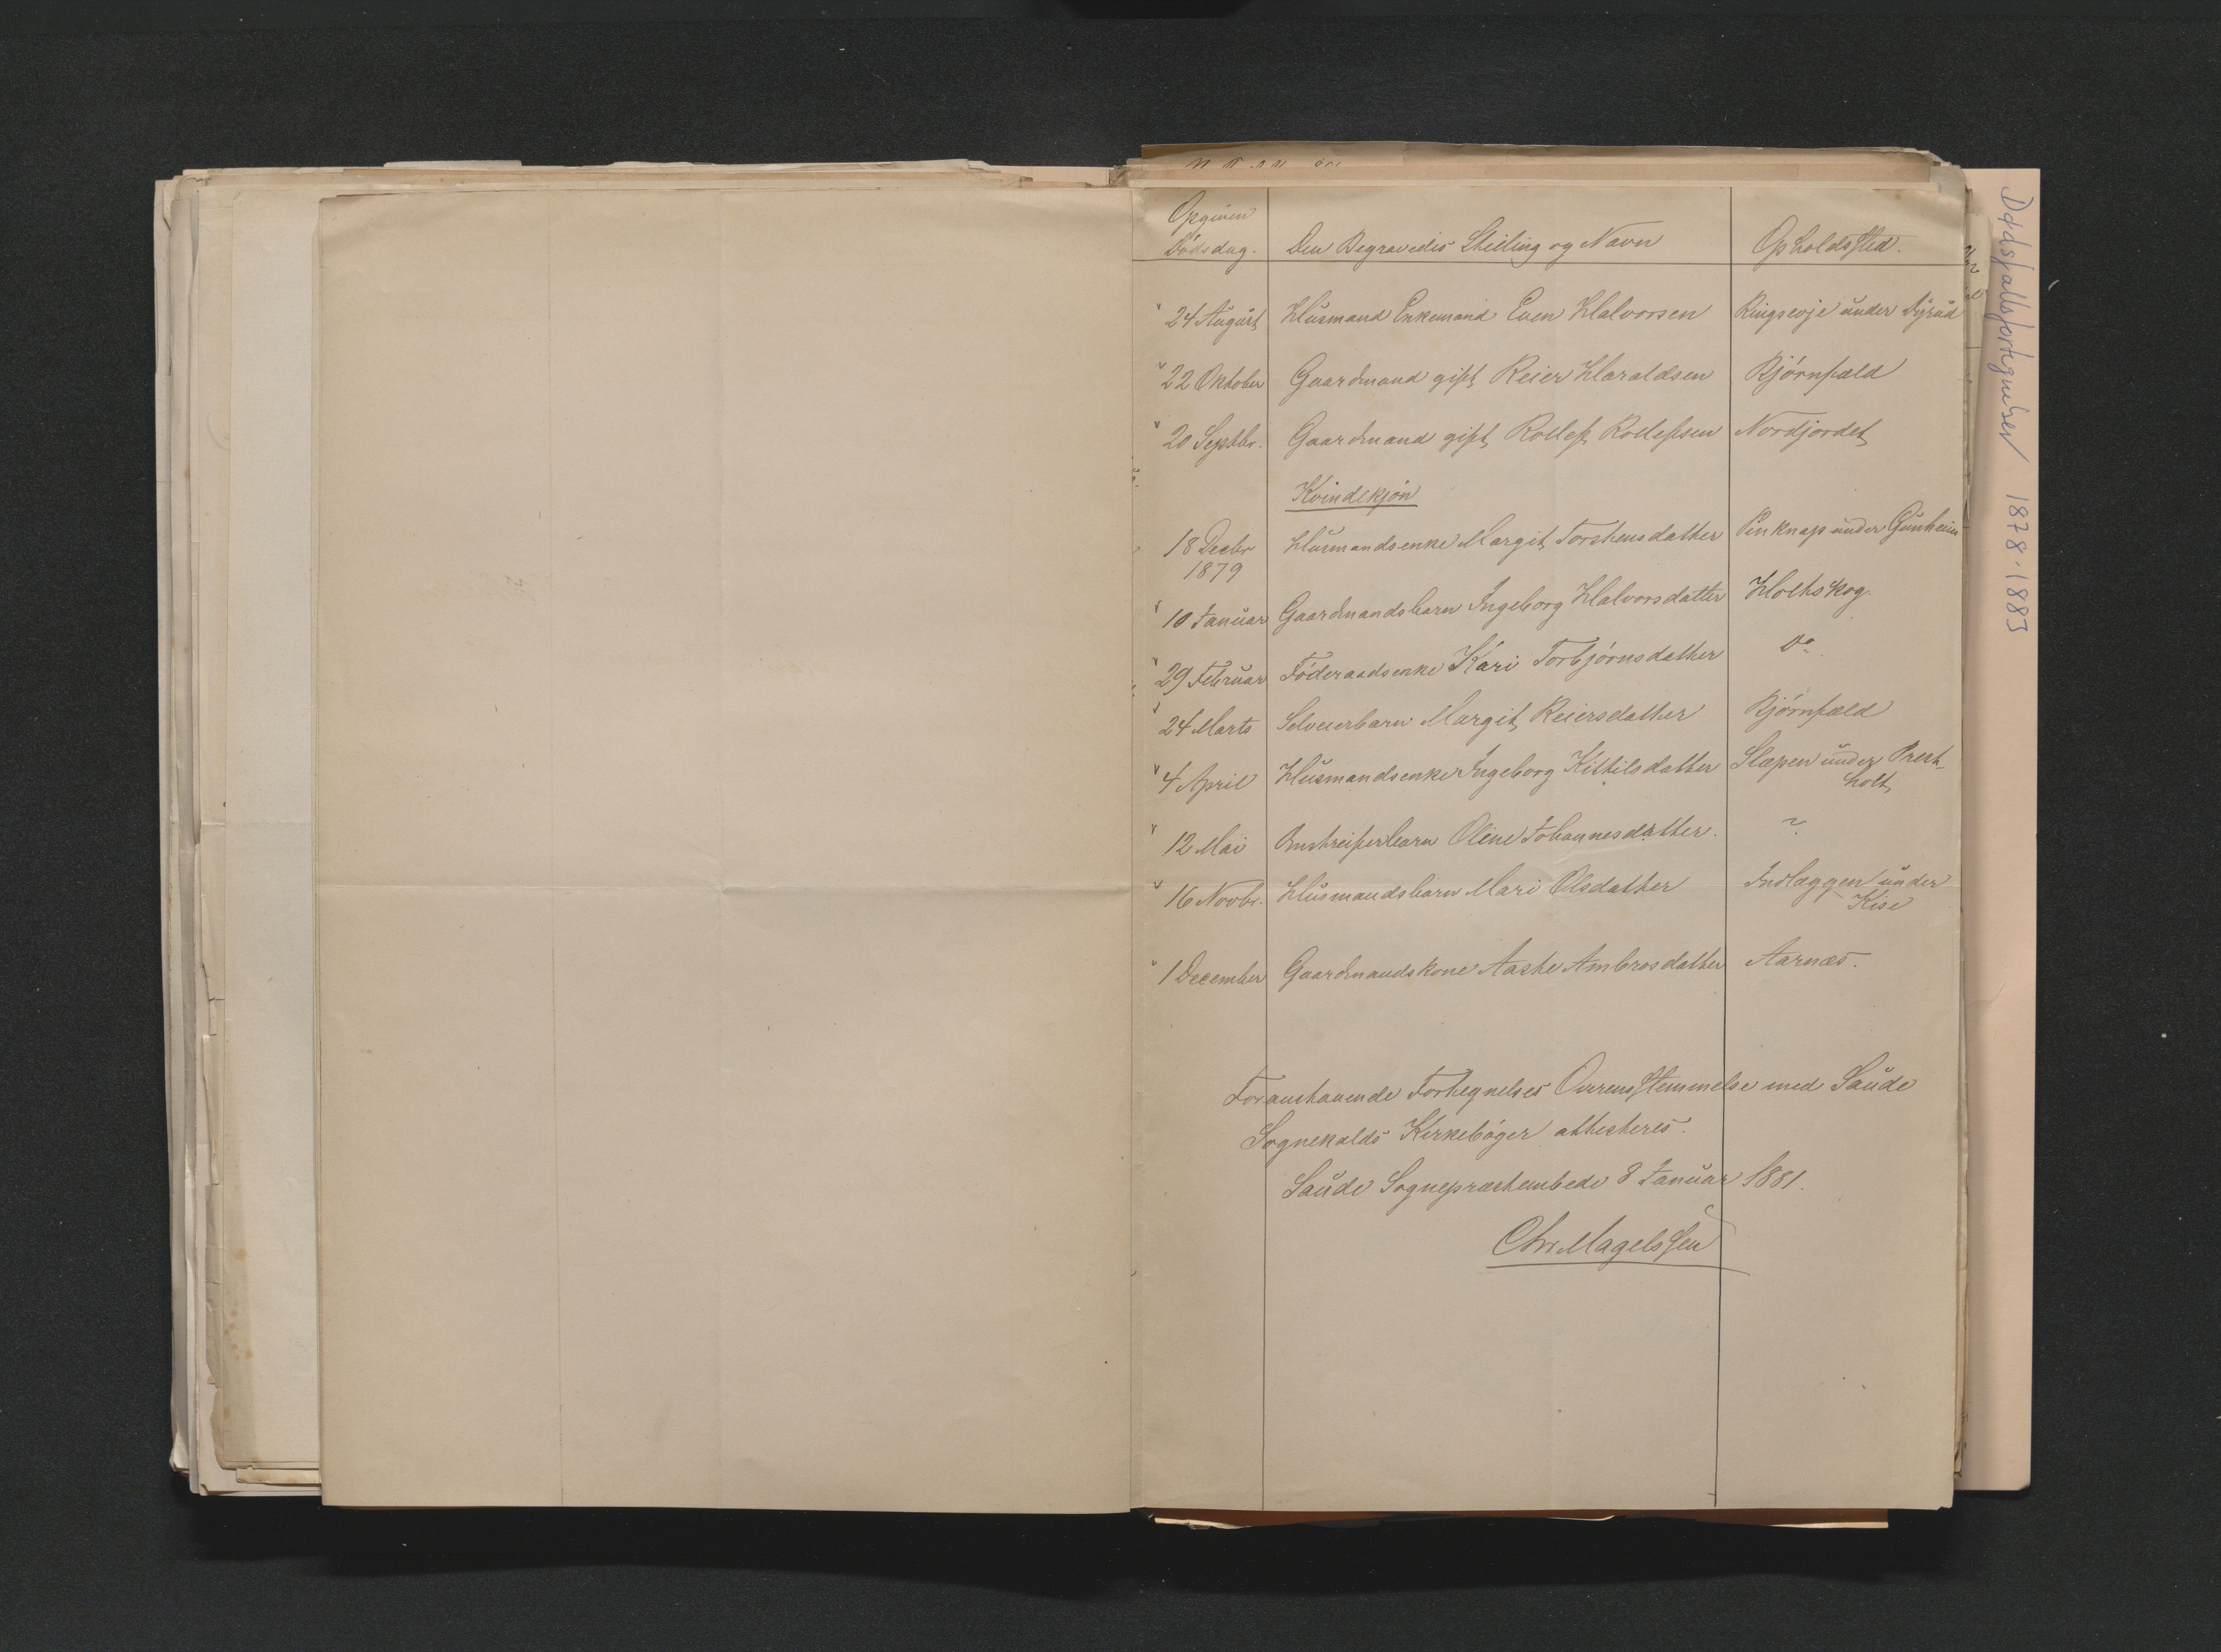 Opgiven
Dødsdag. Den Begravedes Stilling og Navn Opholdssted.
24 August Husmand Enkemand Even Halvorsen Ringsevje under Dyrud
22 Oktober Gaardmand gift Reier Haraldsen Bjørnfæld
20 Septbr. Gaardmand gift Rollef Rollefsen Nordjordet
Kvindekjøn
18 Decbr Husmandsenke Margit Torstensdatter Pinknap under Gunheim
1879
10 Januar Gaardmandsbarn Ingeborg Halvorsdatter Holtskog.
29 Februar Föderaadsenke Kari Torbjørnsdatter Do
24 Marts Selveierbarn Margit Reiersdatter Bjørnfæld
4 April Husmandsenke Ingeborg Kittilsdatter Slæpen under Prest-
holt
12 Mai Omstreiferbarn Oline Johannesdatter. ?
16 Novbr. Husmandsbarn Mari Olsdatter Indlæggen under
Kise
1 December Gaardmandskone Aaste Ambrosdatter Aarnæs.
Foranstaaende Fortegnelses Overensstemmelse med Saude
Sognekalds Kirkebøger attesteres.
Saude Sognepræstembede 8 Januar 1881.
Chr. Magelssen
Dødsfallsfortegnelser 1878-1883